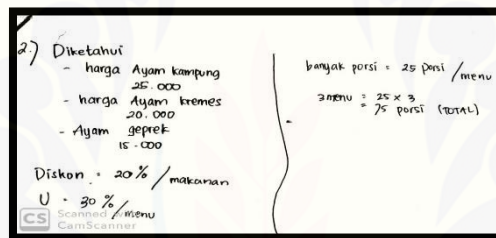 2.) Diketahui
- harga Ayam kampung
25.000
- harga Ayam kremes
20.000
- Ayam geprek
15.000
Diskon = 20% / makanan
U = 30% / menu
CS Scanned with
CamScanner
banyak porsi = 25 porsi / menu
3 menu = 25 x 3
= 75 porsi (TOTAL)